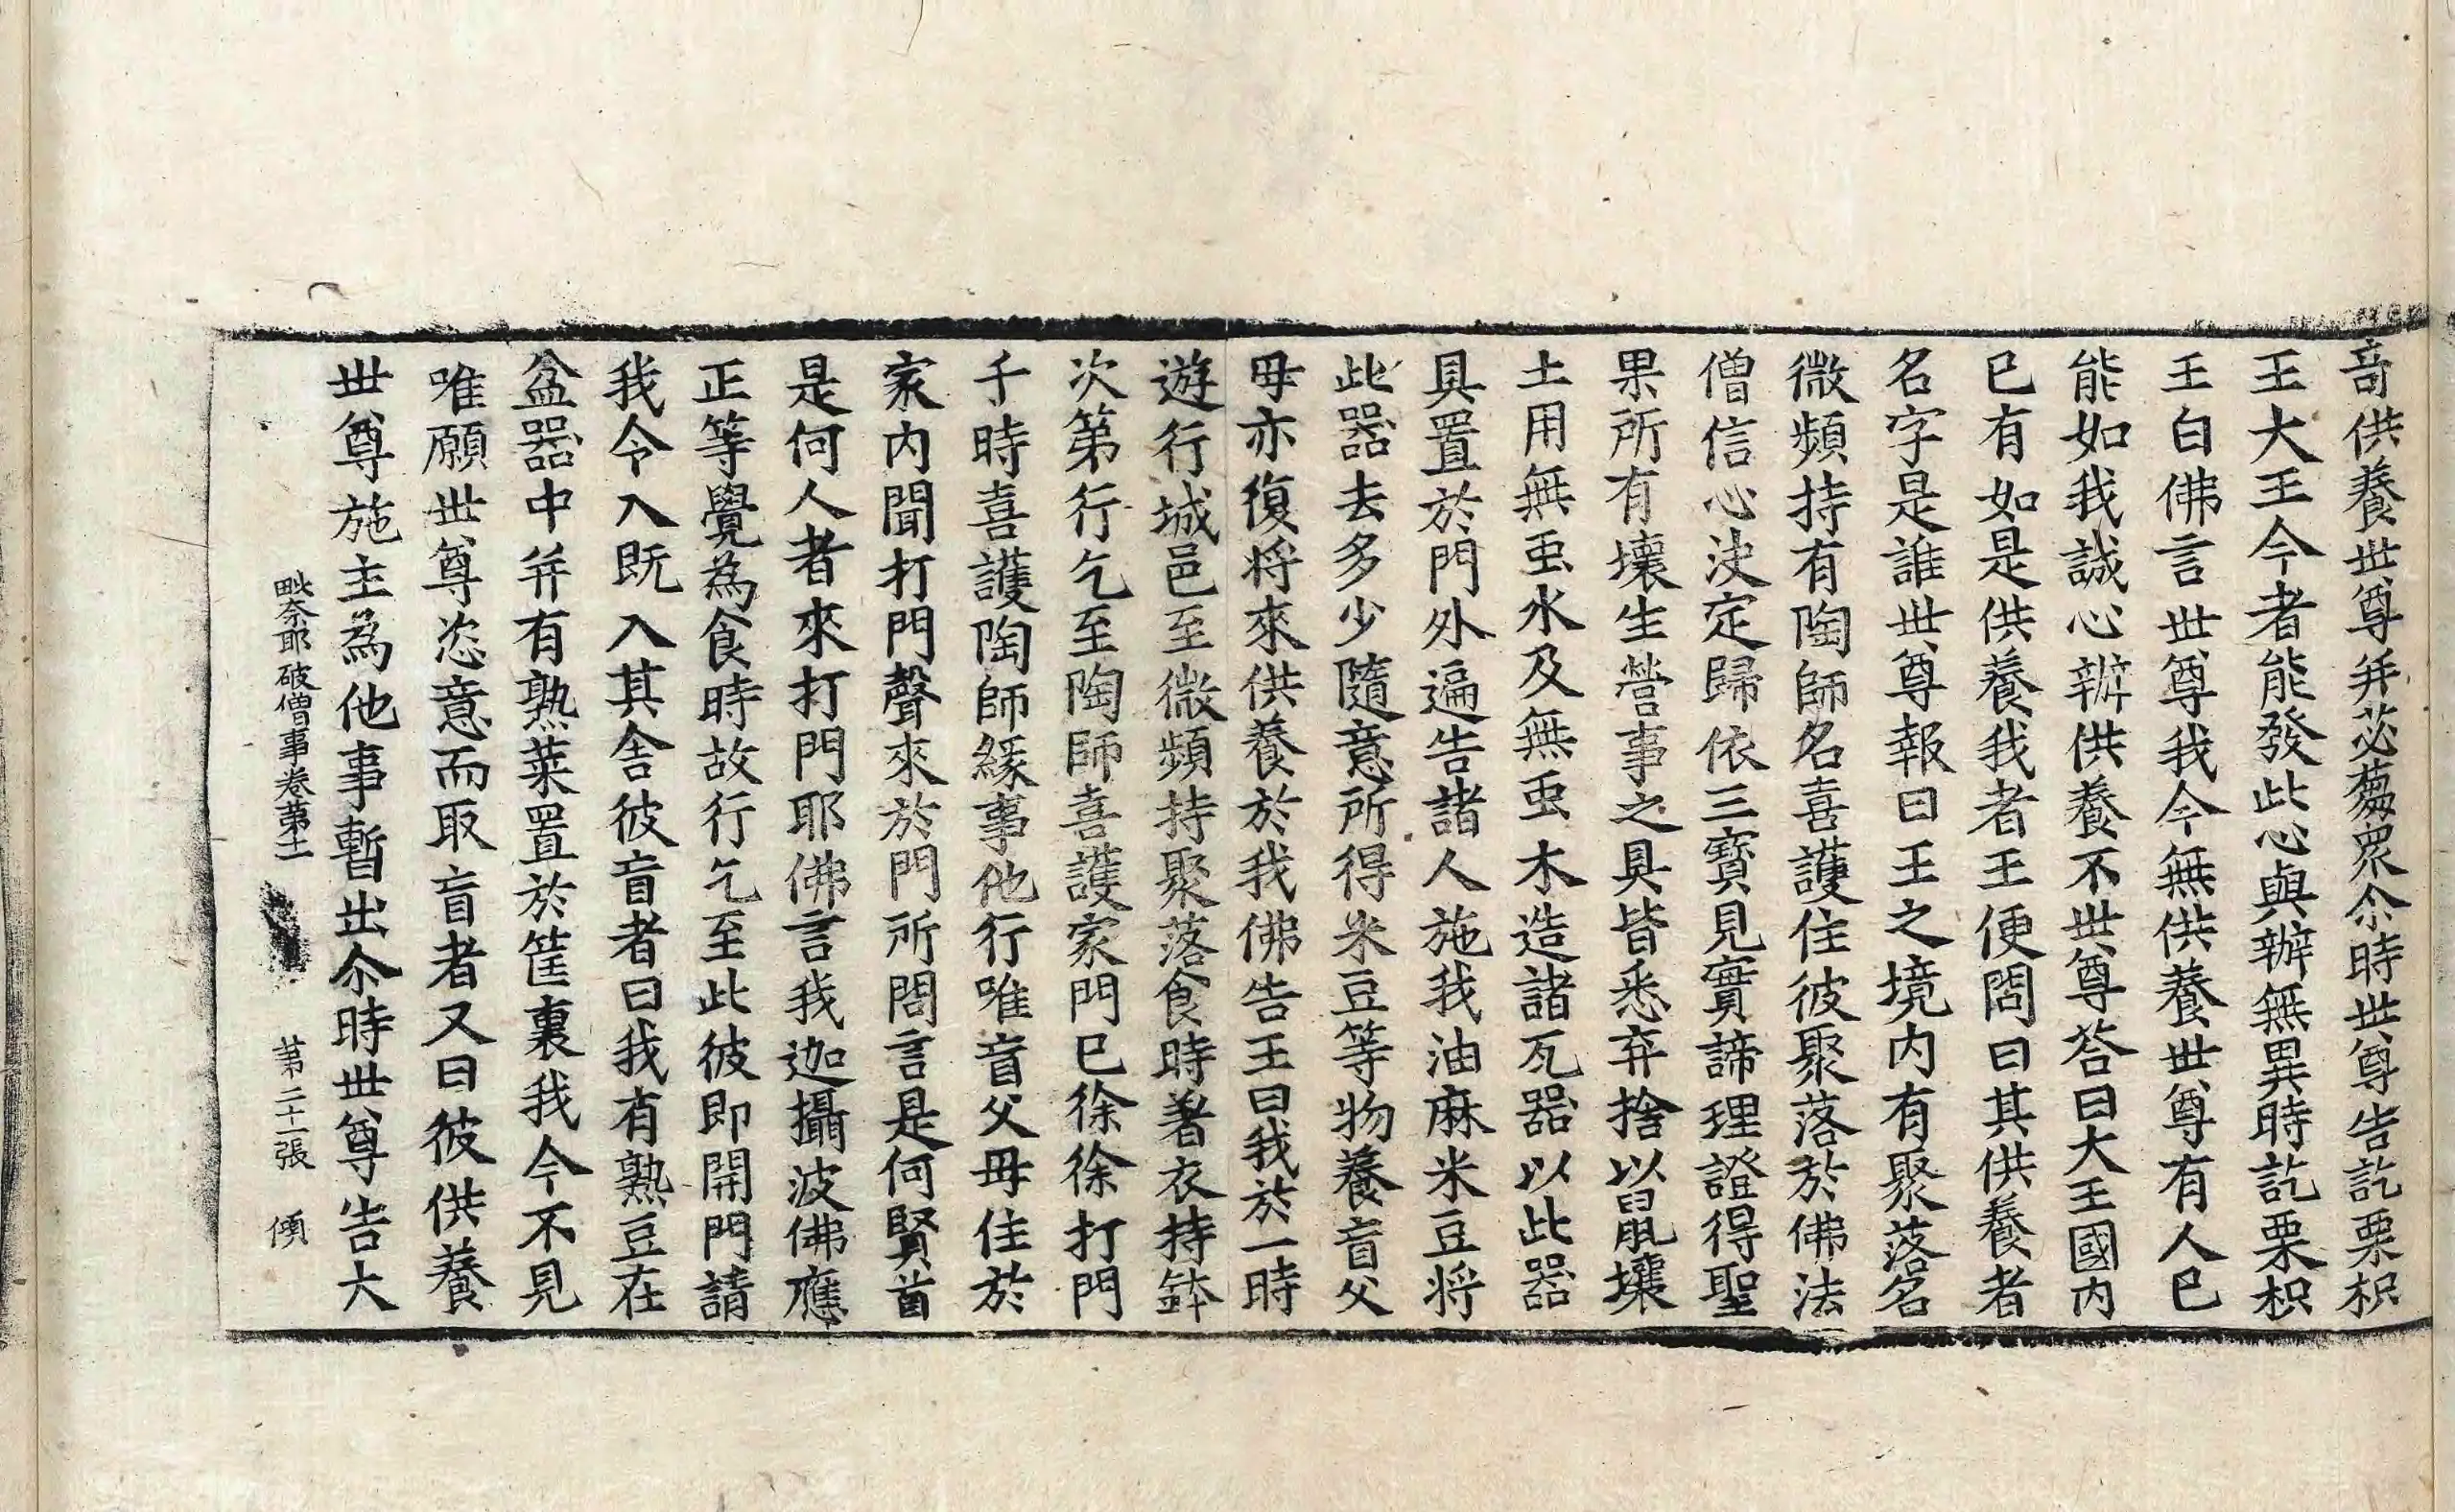 竒供養世尊并苾蒭衆尒時世尊告訖栗枳
王大王今者能發此心與辦無異時訖栗枳
王白佛言世尊我今無供養世尊有人已
能如我誠心辦供養不世尊荅曰大王國内
已有如是供養我者王便問曰其供養者
名字是誰世尊報曰王之境内有聚落名
微頻持有陶師名喜護住彼聚落於佛法
僧信心决定歸依三寶見實諦理證得聖
果所有壞生營事之具皆悉弃捨以鼠壤
土用無虫水及無虫木造諸瓦器以此器
具置於門外遍告諸人施我油麻米豆将
此器去多少隨意所得米豆等物養盲父
母亦復将來供養於我佛告王曰我於一時
遊行城邑至微頻持聚落食時著衣持鉢
次第行乞至陶師喜護家門已徐徐打門
于時喜護陶師緣事他行唯盲父母住於
家内聞打門聲來於門所問言是何賢首
是何人者來打門耶佛言我迦攝波佛應
正等覺為食時故行乞至此彼即開門請
我令入既入其舍彼盲者曰我有熟豆在
盆器中并有熟菜置於筐裏我今不見
唯願世尊恣意而取盲者又曰彼供養
世尊施主為他事暫出尒時世尊告大
毗奈耶破僧事卷第十一 第二十一張 傾